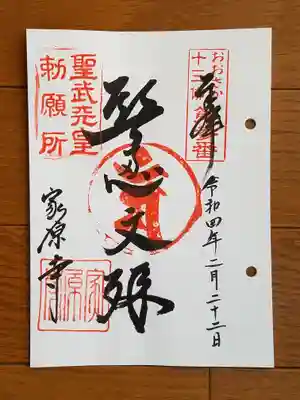 おおさか
十三佛第三番
奉拝
令和四年二月二十二日
智恵文殊
聖武天皇
勅願所
家原寺